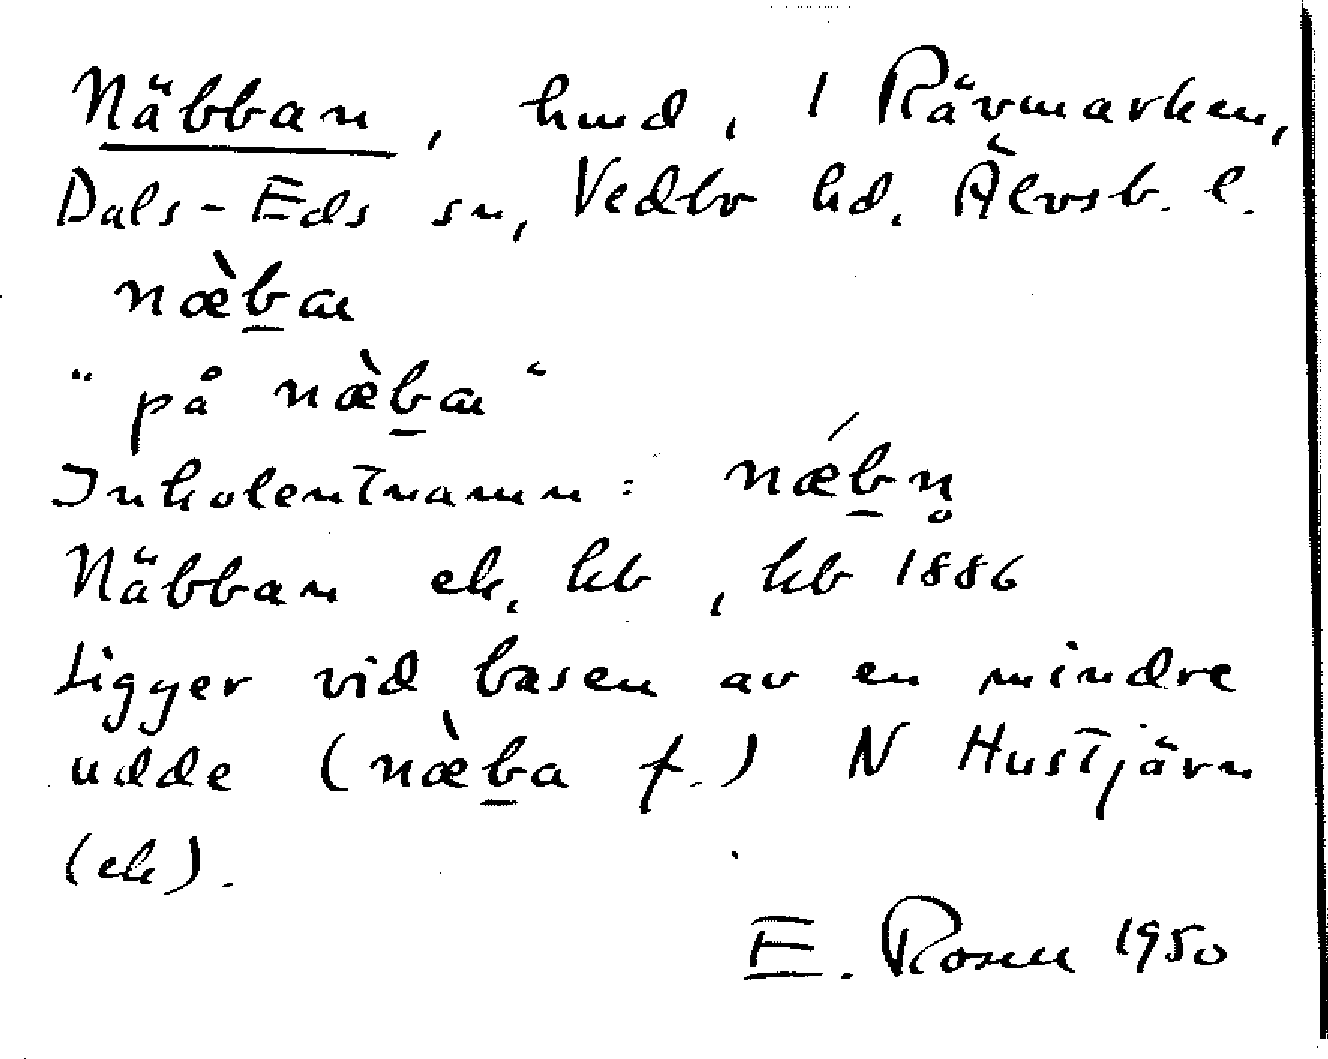 Näbban, hmd, 1 Rävmarken,
Dals-Eds sn, Vedbo hd. Älvsb. l.
næ̀ban
"på næ̀ban"
Inkolentnamn: nǽbn̥
Näbban ek, kb, hb 1886
Ligger vid basen av en mindre
udde (næ̀ba f.) N Hustjärn
(ek).
E. Rosen 1950